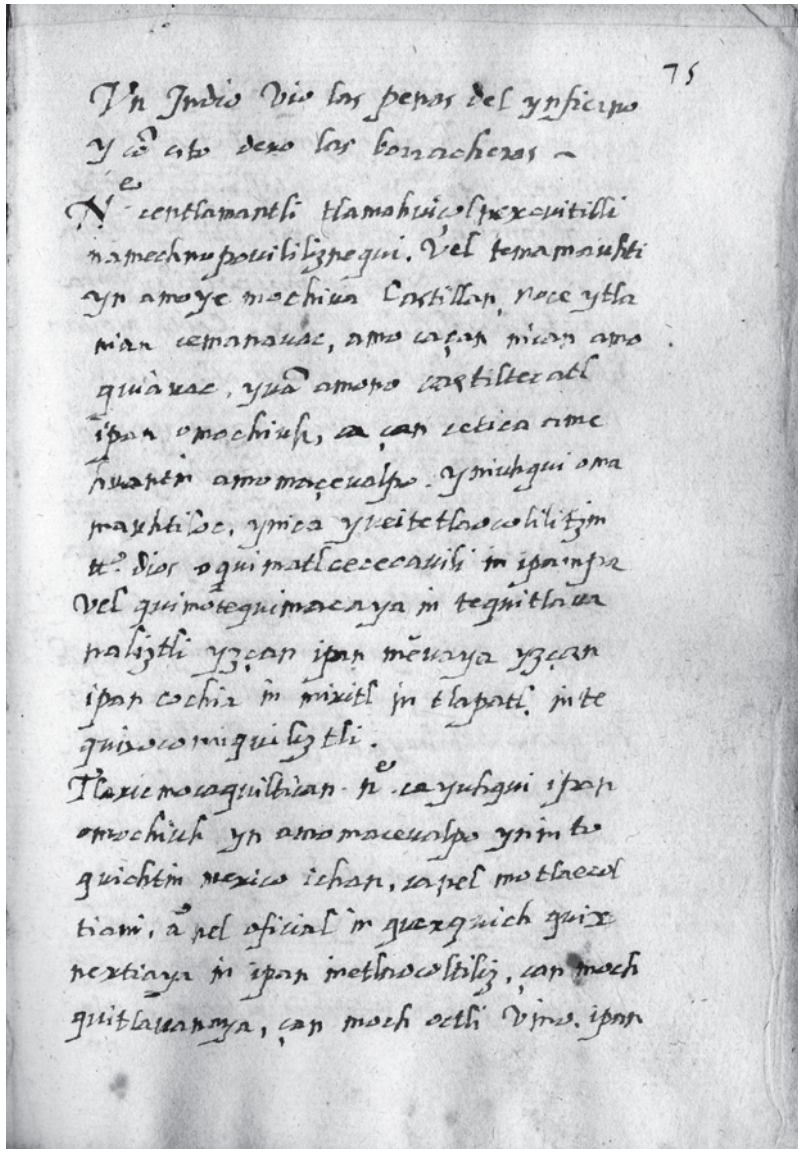 75
Vn Jndio Vio las penas del ynfierno
y cō esto dexo las borracheras ~
Nᵉ centlamantli tlamahuiçolnexcuitilli
namechnopovililiznequi. Vel temamauhti
yn amo ye mochiua Castillan, noce ytla
nian cemanavac, amo caçan nican amo
quiavac. yuā amono caxtiltecatl
ipan omochiuh, ca çan cetica ame
huantin amomaçevalpo. yniuhqui oma
mauhtiloc, ynica yveitetlaocolilitzin
ttº. dios oquimatlcececauili in ipampa
Vel quimotequimacaya in tequitlava
naliztli yzçan ipan mēuaya yzçan
ipan cochia in mixitl in tlapatl, in te
quixocomiquiliztli.
Tlaxicmocaquiltican. nᵉ. ca yuhqui ipan
omochiuh yn amomacevalpo ynin to
quichtin mexico ichan, canel motlaecol
tiani, aº nel oficial in quexquich quix
nextiaya in ipan inetlaocoltiliz, çan moch
quitlauanaya, çan moch octli Vino. ipan